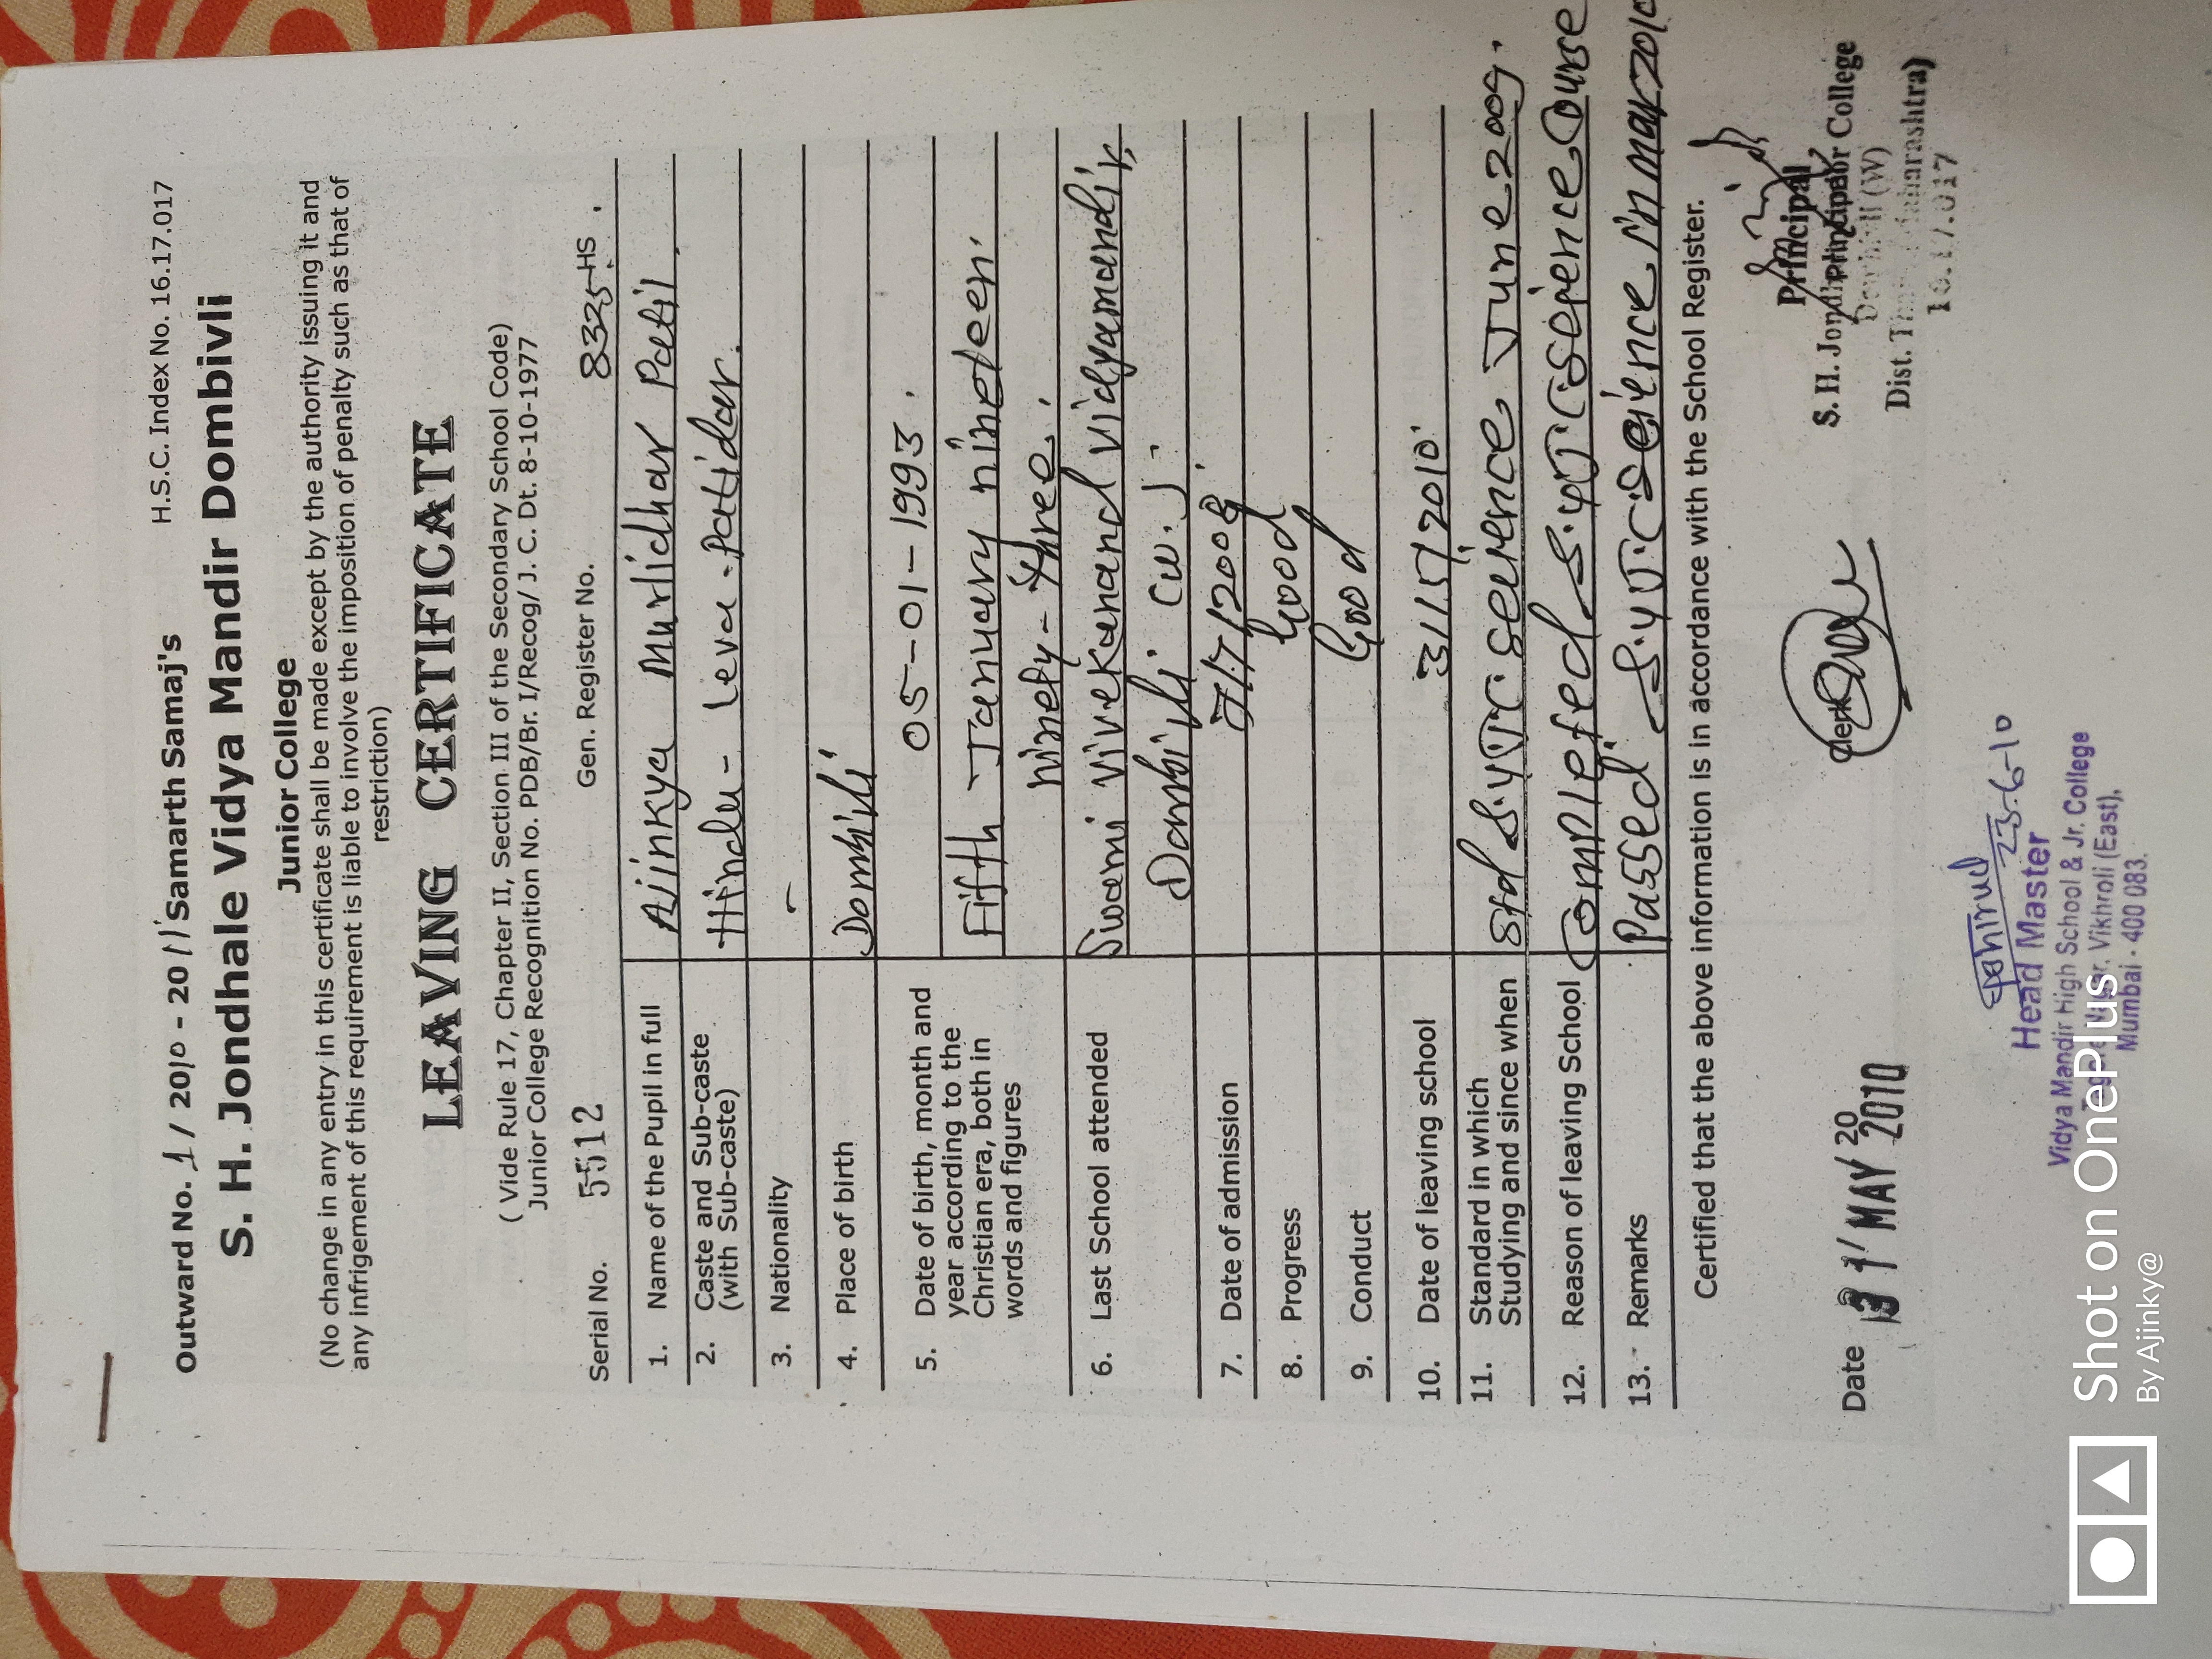 Outward No. 1 / 2010 - 2011 Samarth Samaj's H.S.C. Index No. 16.17.017
S. H. Jondhale Vidya Mandir Dombivli
Junior College
(No change in any entry in this certificate shall be made except by the authority issuing it and
any infrigement of this requirement is liable to involve the imposition of penalty such as that of
restriction)
LEAVING CERTIFICATE
( Vide Rule 17, Chapter II, Section III of the Secondary School Code)
Junior College Recognition No. PDB/Br. I/Recog/ J. C. Dt. 8-10-1977
Serial No. 5512 Gen. Register No. 8325-HS
1. Name of the Pupil in full Ajinkya Murlidhar Patil
2. Caste and Sub-caste Hindu - Leva - Patidar.
(with Sub-caste)
3. Nationality -
4. Place of birth Dombivli
5. Date of birth, month and 05-01-1993.
year according to the Fifth January nineteen
Christian era, both in ninety-three.
words and figures
6. Last School attended Swami vivekanand vidyamandir,
Dombivli (w.)
7. Date of admission 7/7/2008
8. Progress Good
9. Conduct Good
10. Date of leaving school 31/5/2010
11. Standard in which Std S.Y.J.C science June 2009.
Studying and since when
12. Reason of leaving School Completed S.Y.J.C science Course
13. Remarks Passed S.Y.J.C science in mar 2010
Certified that the above information is in accordance with the School Register.
Date 31 MAY 2010 20
Clerk
Principal
S. H. Jondhale College
Dombivli (W)
Dist. Thane Maharashtra)
16.17.017
23-6-10
Head Master
Vidya Mandir High School & Jr. College
Tagore Nagar, Vikhroli (East),
Mumbai - 400 083.
Shot on OnePlus
By Ajinky@